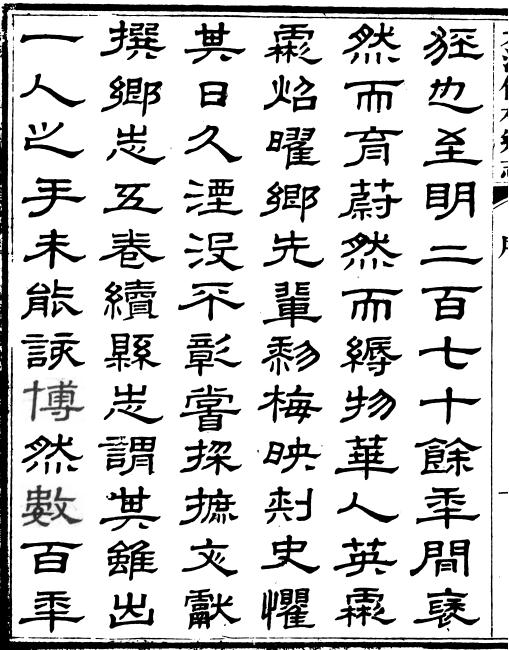 也至明二百七十餘年間褎
然而育蔚然而縟物華人英彪
彪炤曜鄉先輩黎梅映刺史懼
其日久湮沒不彰嘗採摭文獻
撰鄉志五卷續縣志謂其雖出
一人之手未能該博然數百年